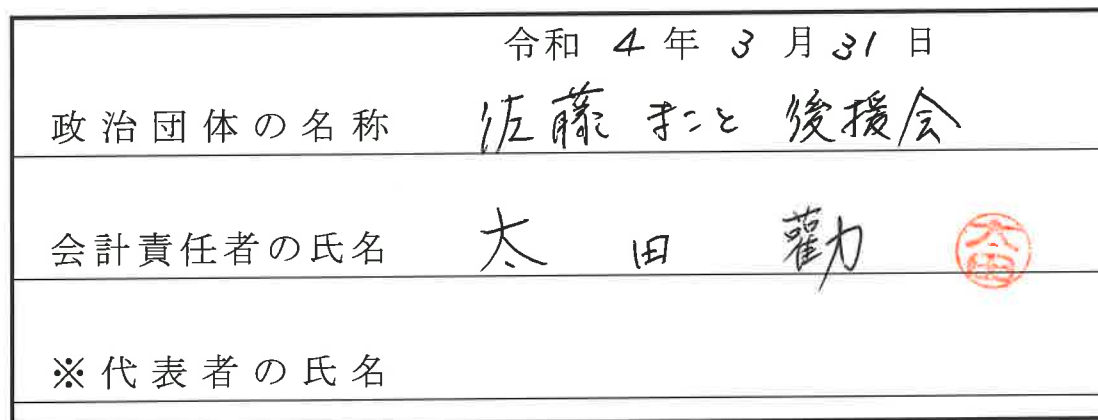 令和 4 年 3 月 31 日
政治団体の名称 佐藤まこと後援会
会計責任者の氏名 太田 勸 太田
※代表者の氏名